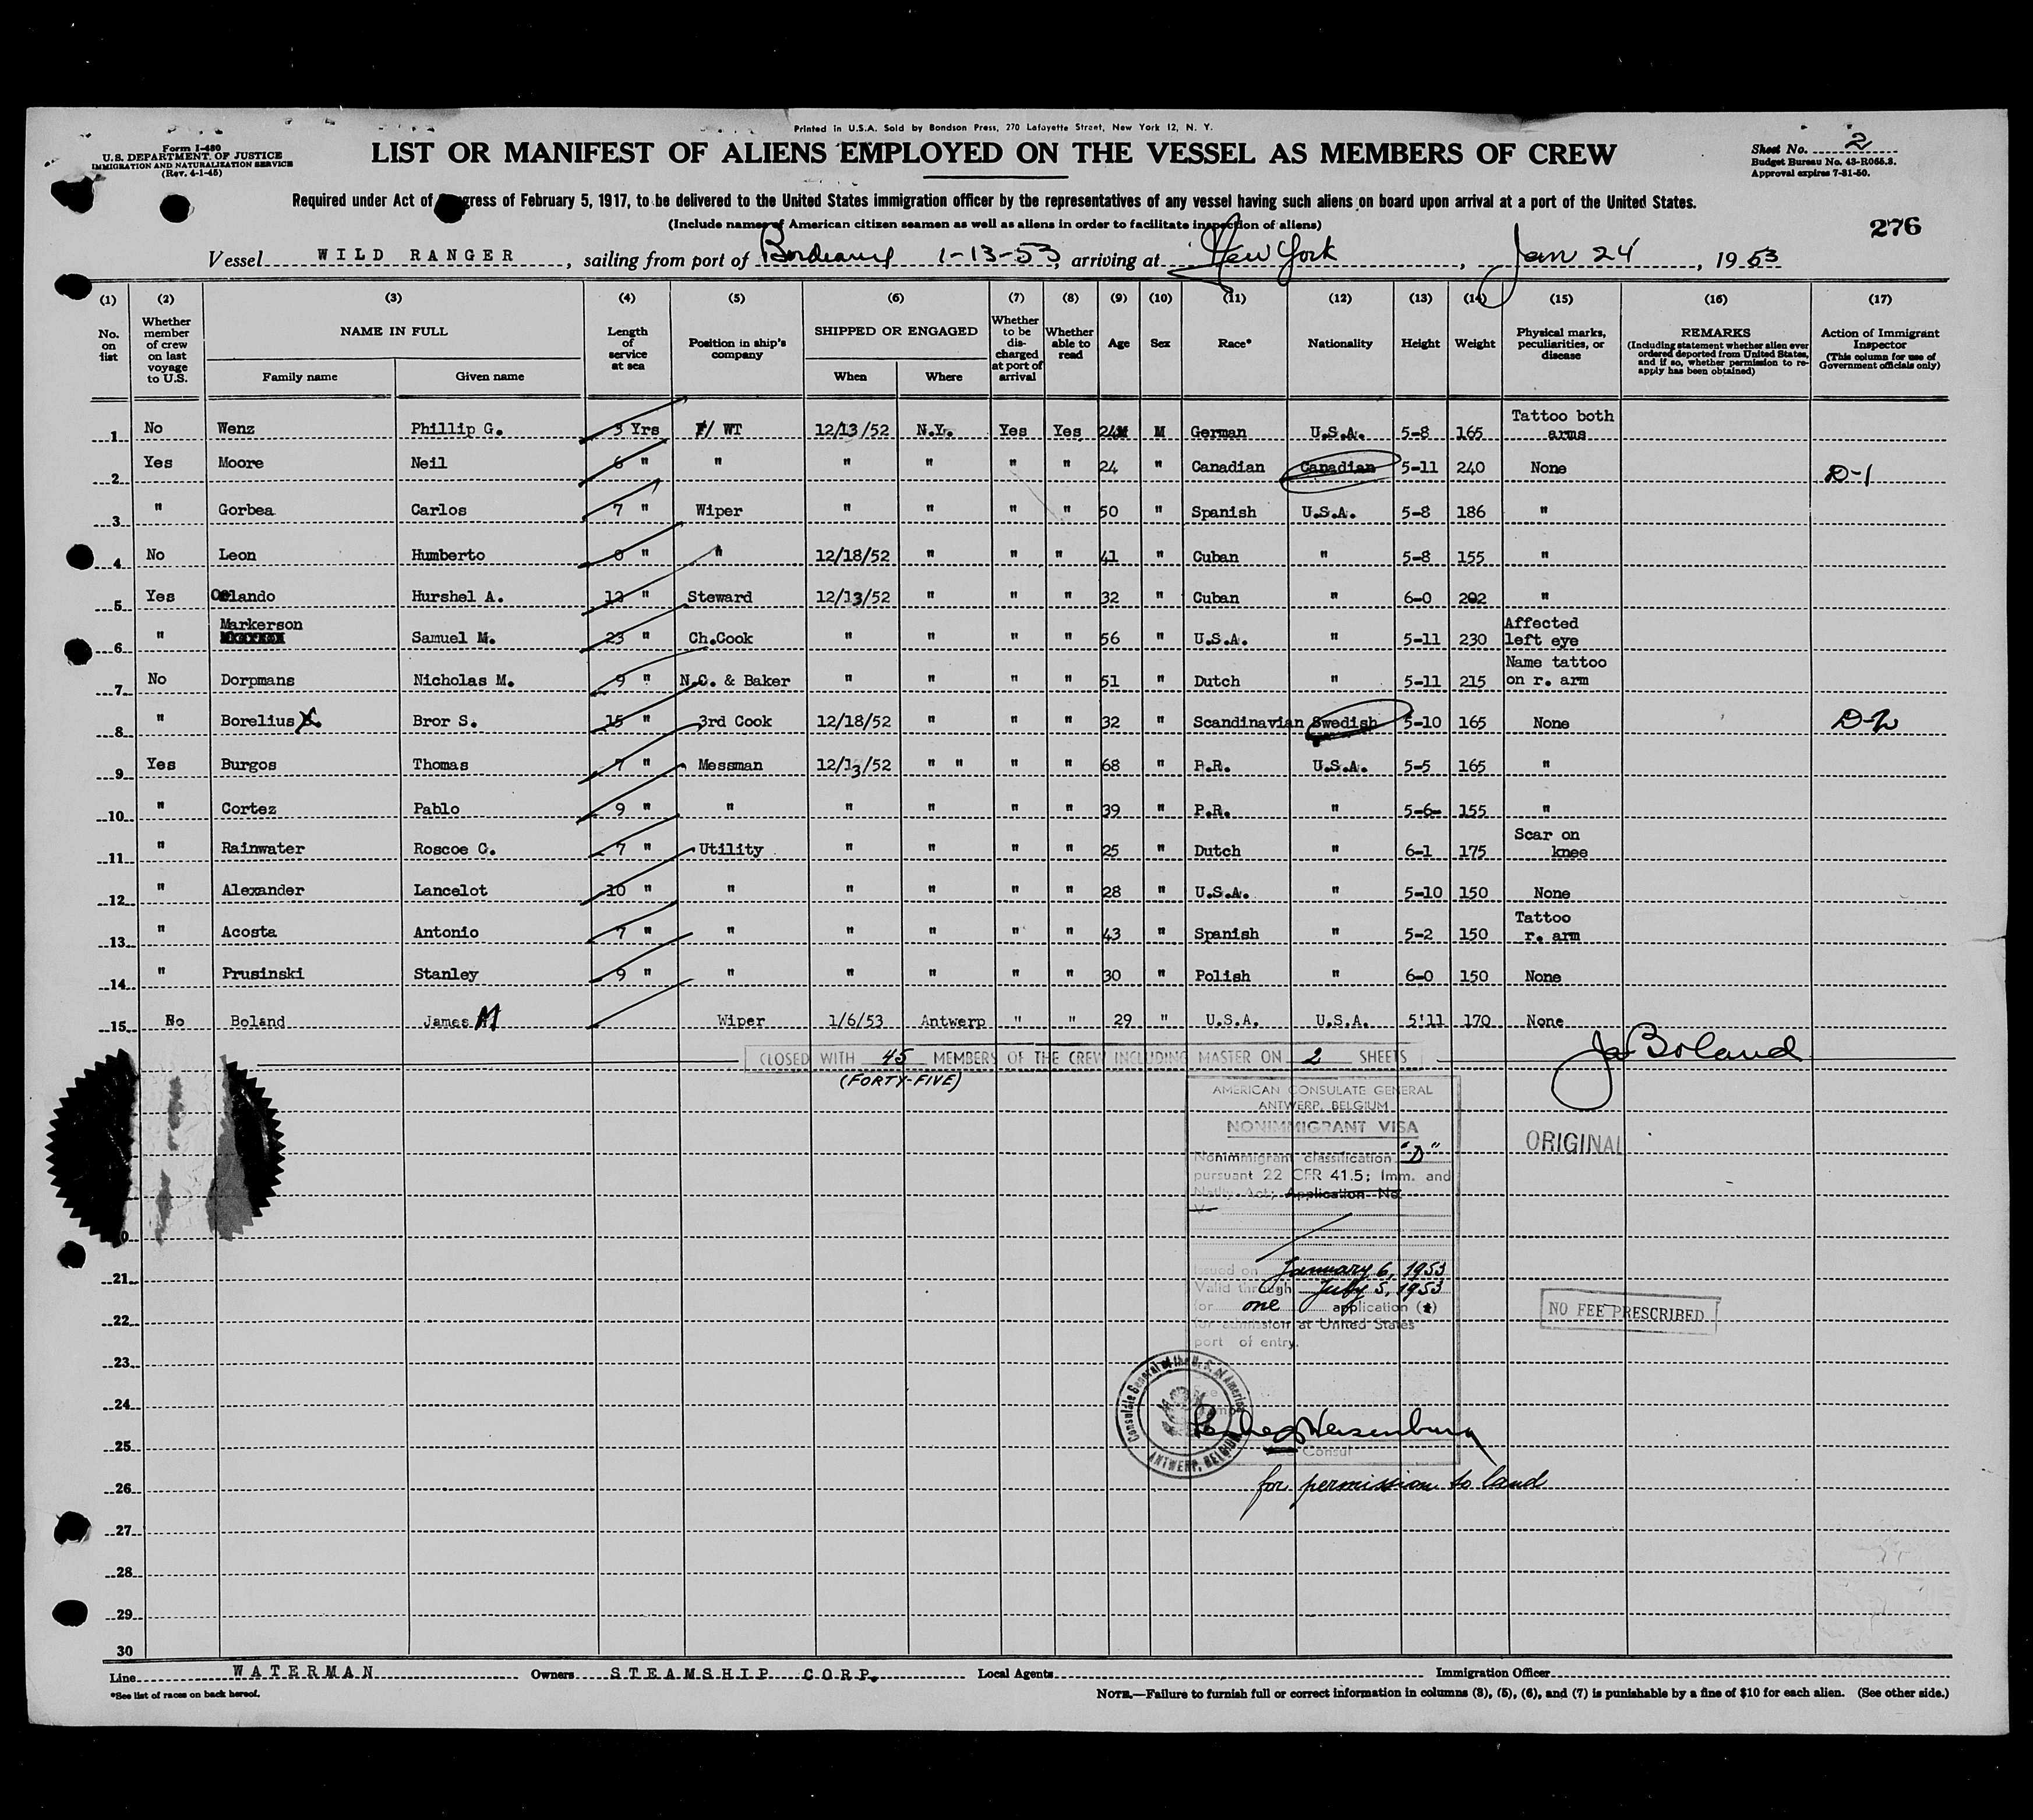 Printed in U.S.A. Sold by Bondson Press, 270 Lafayette Street, New York 12, N. Y.
Form I-480
U.S. DEPARTMENT OF JUSTICE
IMMIGRATION AND NATURALIZATION SERVICE
(Rev. 4-1-45)
LIST OR MANIFEST OF ALIENS EMPLOYED ON THE VESSEL AS MEMBERS OF CREW
Sheet No. 2
Budget Bureau No. 43-R065.3.
Approval expires 7-31-50.
Required under Act of gress of February 5, 1917, to be delivered to the United States immigration officer by the representatives of any vessel having such aliens on board upon arrival at a port of the United States.
(Include names of American citizen seamen as well as aliens in order to facilitate inspection of aliens)
276
Vessel WILD RANGER, sailing from port of Bordeaux 1-13-53, arriving at New York, Jan 24, 1953
(1) (2) (3) (4) (5) (6) (7) (8) (9) (10) (11) (12) (13) (14) (15) (16) (17)
No. on list
Whether member of crew on last voyage to U.S.
NAME IN FULL
Family name Given name
Length of service at sea
Position in ship's company
SHIPPED OR ENGAGED
When Where
Whether to be discharged at port of arrival
Whether able to read
Age
Sex
Race*
Nationality
Height
Weight
Physical marks, peculiarities, or disease
REMARKS
(Including statement whether alien ever ordered deported from United States, and if so, whether permission to re-apply has been obtained)
Action of Immigrant Inspector
(This column for use of Government officials only)
1 No Wenz Phillip G. 3 Yrs F/ WT 12/13/52 N.Y. Yes Yes 24 M German U.S.A. 5-8 165 Tattoo both arms
2 Yes Moore Neil 6 " " " " " " 24 " Canadian Canadian 5-11 240 None D-1
3 " Gorbea Carlos 7 " Wiper " " " " 50 " Spanish U.S.A. 5-8 186 "
4 No Leon Humberto " " 12/18/52 " " " 41 " Cuban " 5-8 155 "
5 Yes Orlando Hurshel A. 13 " Steward 12/13/52 " " " 32 " Cuban " 6-0 202 "
6 " Markerson Samuel M. 23 " Ch.Cook " " " " 56 " U.S.A. " 5-11 230 Affected left eye
7 No Dorpmans Nicholas M. 9 " N.C. & Baker " " " " 51 " Dutch " 5-11 215 Name tattoo on r. arm
8 " Borelius Bror S. 15 " 3rd Cook 12/18/52 " " " 32 " Scandinavian Swedish 5-10 165 None D-2
9 Yes Burgos Thomas 7 " Messman 12/13/52 " " " " 68 " P.R. U.S.A. 5-5 165 "
10 " Cortez Pablo 9 " " " " " " 39 " P.R. " 5-6- 155 "
11 " Rainwater Roscoe C. 7 " Utility " " " " 25 " Dutch " 6-1 175 Scar on knee
12 " Alexander Lancelot 10 " " " " " " 28 " U.S.A. " 5-10 150 None
13 " Acosta Antonio 7 " " " " " " 43 " Spanish " 5-2 150 Tattoo r. arm
14 " Prusinski Stanley 9 " " " " " " 30 " Polish " 6-0 150 None
15 No Boland James M Wiper 1/6/53 Antwerp " " 29 " U.S.A. U.S.A. 5'11 170 None
Boland
CLOSED WITH 45 MEMBERS OF THE CREW INCLUDING MASTER ON 2 SHEETS
(FORTY-FIVE)
AMERICAN CONSULATE GENERAL
ANTWERP, BELGIUM
NONIMMIGRANT VISA
Nonimmigrant classification "D"
pursuant 22 CFR 41.5; Imm. and
Nat'ty Act; Application No.
V-
Issued on January 6, 1953
Valid through July 5, 1953
for one application (s)
for admission at United States
port of entry.
ORIGINAL
NO FEE PRESCRIBED
Consulate General of the U. S. of America
ANTWERP, BELGIUM
Consul
for permission to land
21
22
23
24
25
26
27
28
29
30
Line WATERMAN Owners STEAMSHIP CORP. Local Agents Immigration Officer
*See list of races on back hereof.
NOTE.—Failure to furnish full or correct information in columns (3), (5), (6), and (7) is punishable by a fine of $10 for each alien. (See other side.)